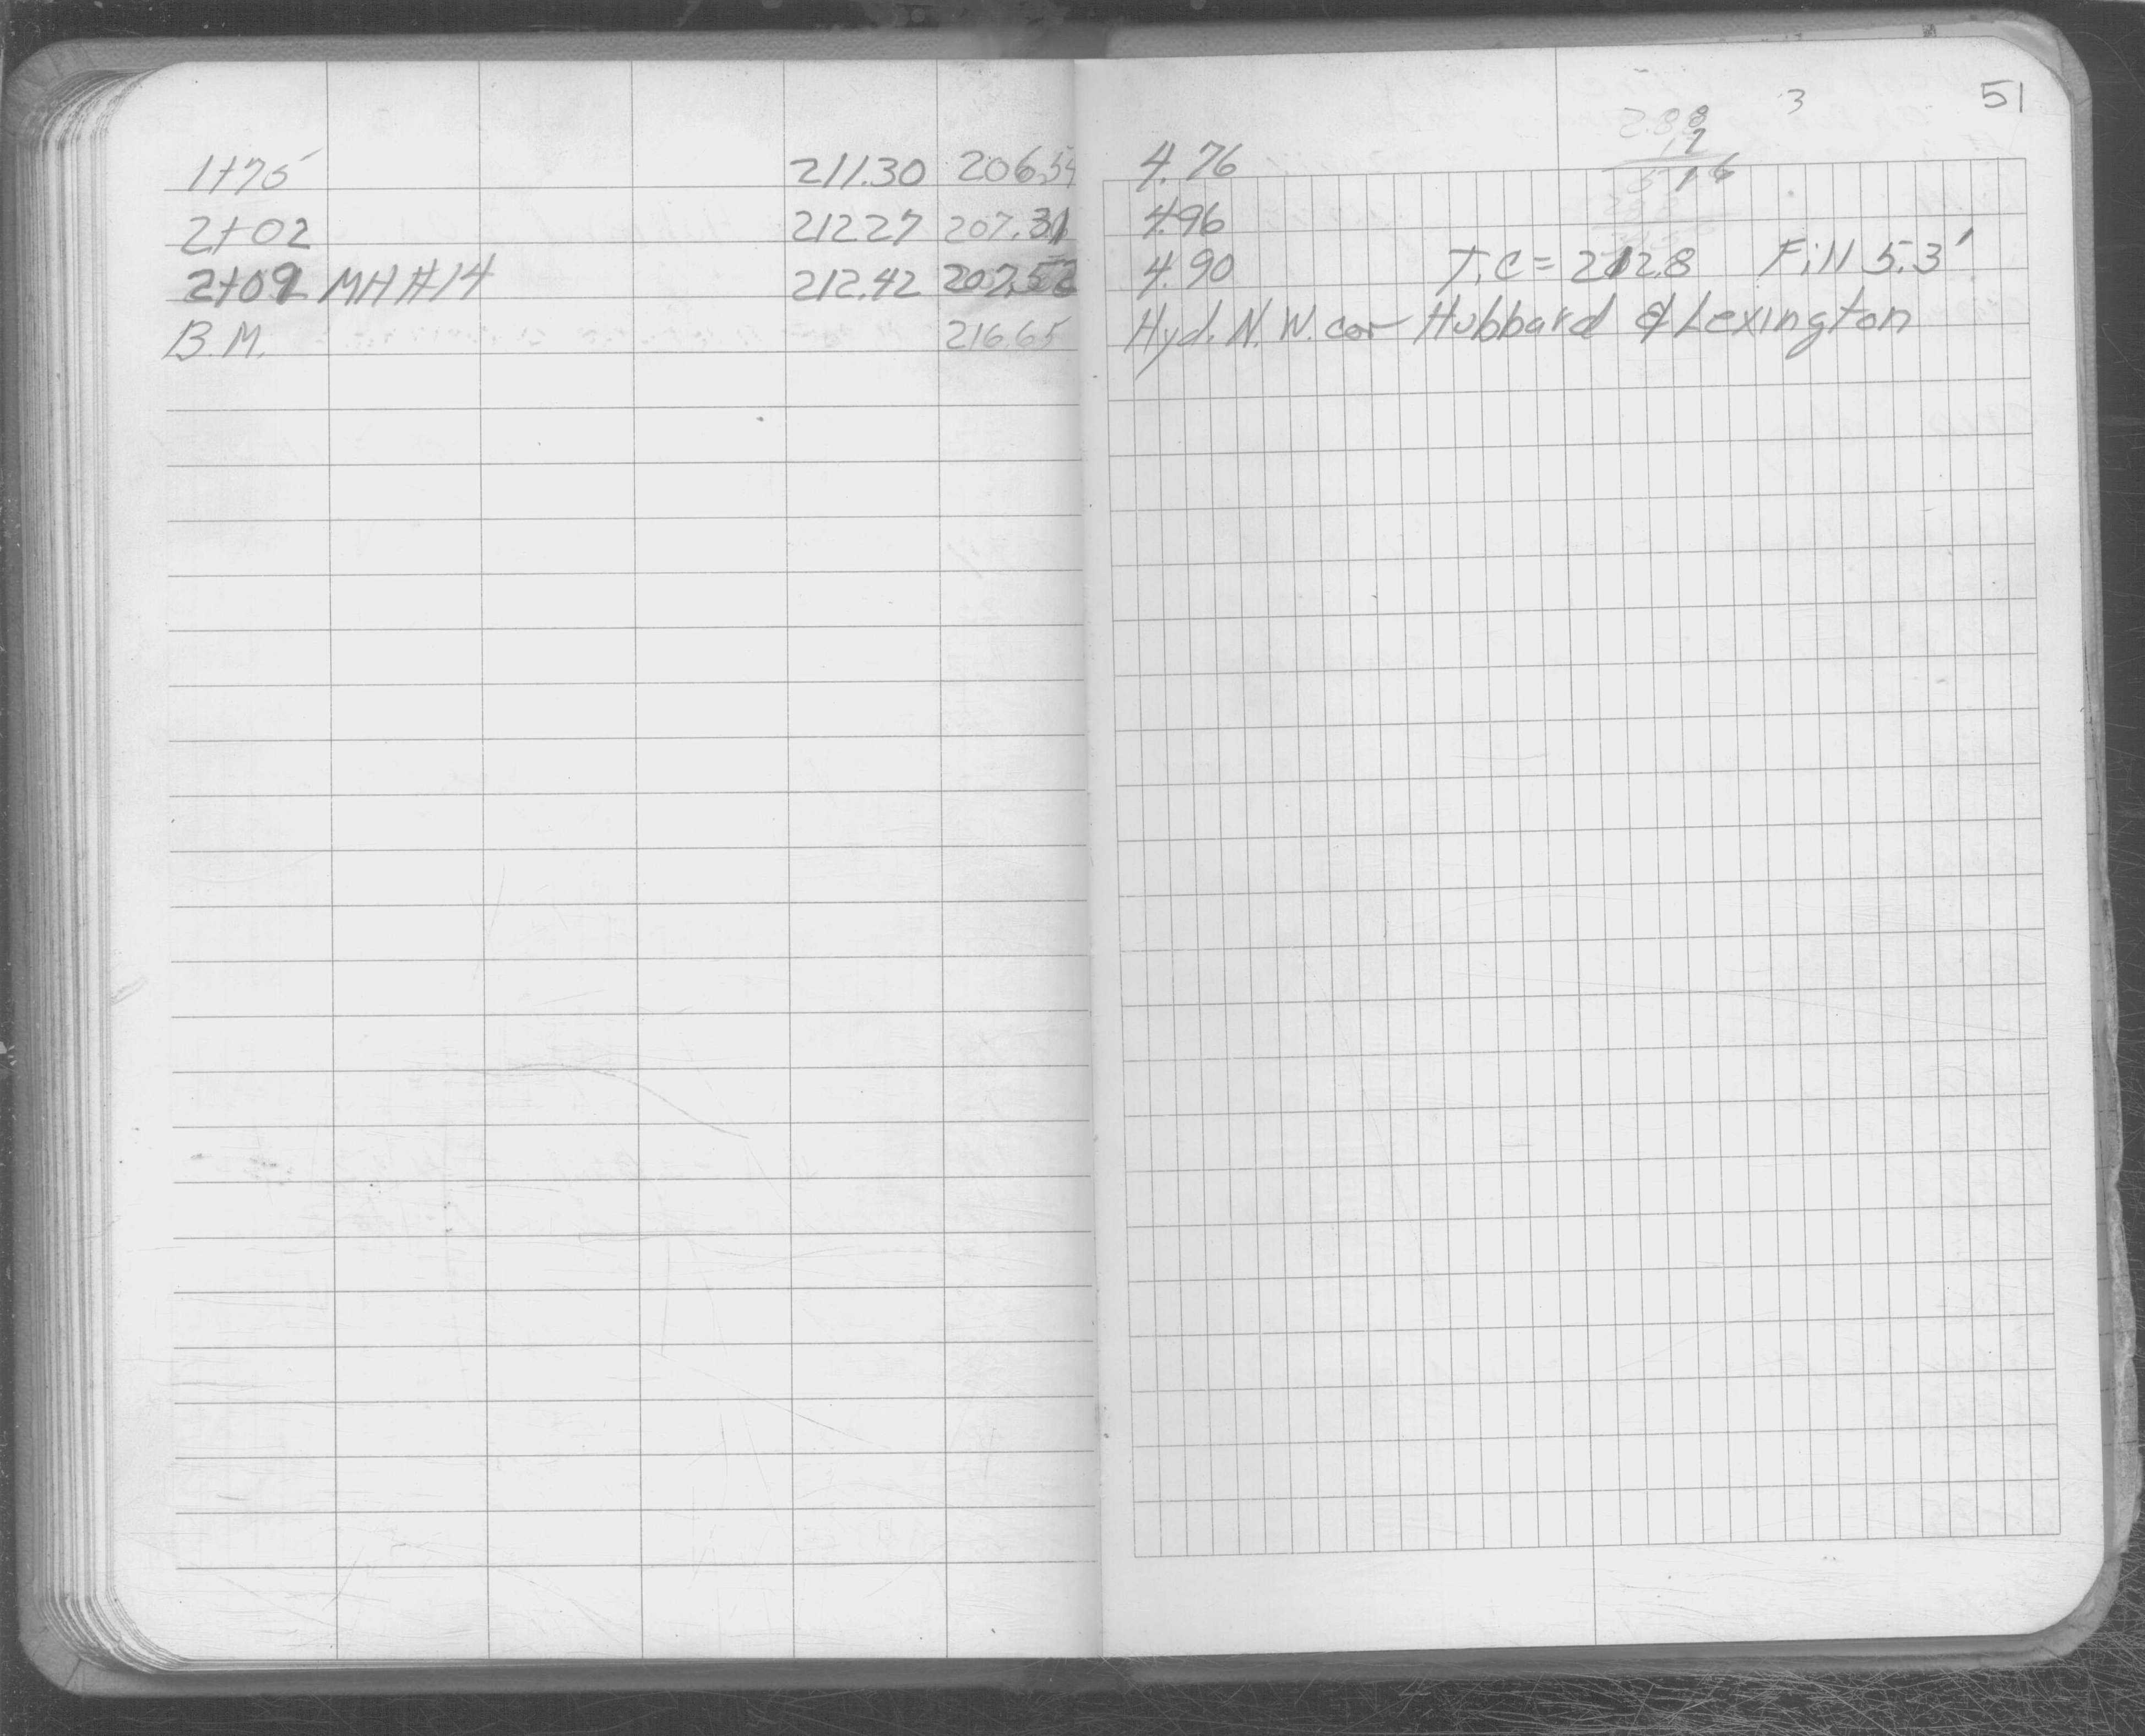 3 51
1+75 211.30 206.54 4.76
2+02 212 27 207.31 4.96
2+09 MH #14 212.42 207.52 4.90 T.C = 212.8 Fill 5.3'
B.M. 216.65 Hyd. N. W. cor Hubbard & Lexington